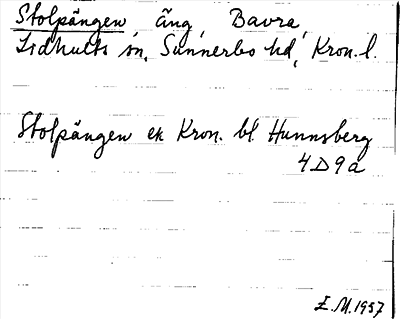 Stolpängen, äng, Bavra,
Lidhults sn, Sunnerbo hd, Kron. l.
Stolpängen ek Kron. bl. Hunnsberg
4D9a
E.M.1957